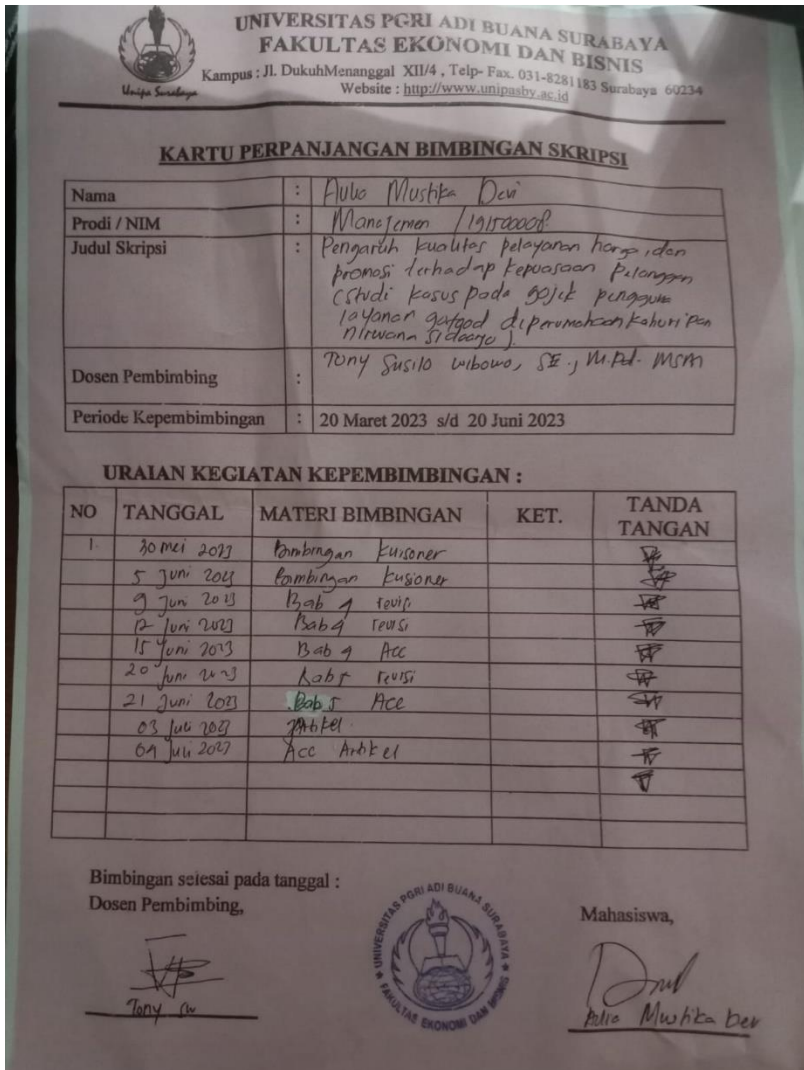 UNIVERSITAS PGRI ADI BUANA SURABAYA
FAKULTAS EKONOMI DAN BISNIS
Kampus : Jl. DukuhMenanggal XII/4 , Telp- Fax. 031-8281183 Surabaya 60234
Website : http://www.unipasby.ac.id
Unipa Surabaya
KARTU PERPANJANGAN BIMBINGAN SKRIPSI
Nama : Aulia Mustika Devi
Prodi / NIM : Manajemen / 191500008
Judul Skripsi : Pengaruh kualitas pelayanan harga, dan
promosi terhadap kepuasaan Pelanggan
(Studi kasus pada gojek pengguna
layanan gofood diperumahaan kahuripan
nirwana Sidoarjo).
Dosen Pembimbing : Tony Susilo wibowo, SE., M.Pd. MSM
Periode Kepembimbingan : 20 Maret 2023 s/d 20 Juni 2023
URAIAN KEGIATAN KEPEMBIMBINGAN :
NO TANGGAL MATERI BIMBINGAN KET. TANDA TANGAN
1. 30 mei 2023 Bimbingan Kuisoner
5 Juni 2023 Bimbingan kusioner
9 Juni 2023 Bab 4 revisi
12 Juni 2023 Bab 4 revisi
15 Juni 2023 Bab 4 Acc
20 Juni 2023 Bab 5 revisi
21 Juni 2023 Bab 5 Acc
03 Juli 2023 Artikel
04 Juli 2023 Acc Artikel
Bimbingan selesai pada tanggal :
Dosen Pembimbing,
Mahasiswa,
UNIVERSITAS PGRI ADI BUANA SURABAYA
FAKULTAS EKONOMI DAN BISNIS
Tony sw
Aulia Mustika Dev